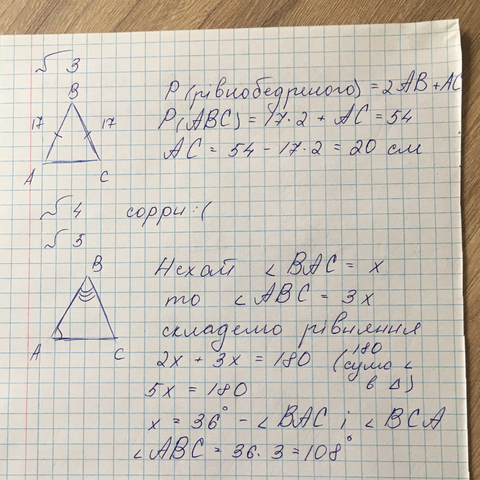 √ 3
B
17 17
A C
P (рівнобедреного) = 2AB + AC
P (ABC) = 17·2 + AC = 54
AC = 54 - 17·2 = 20 см
√ 4 сорри :(
√ 5
B
A C
Нехай ∠ BAC = x
то ∠ ABC = 3x
складемо рівняння
2x + 3x = 180 (сума ∠ 180
в Δ)
5x = 180
x = 36° - ∠ BAC і ∠ BCA
∠ ABC = 36·3 = 108°